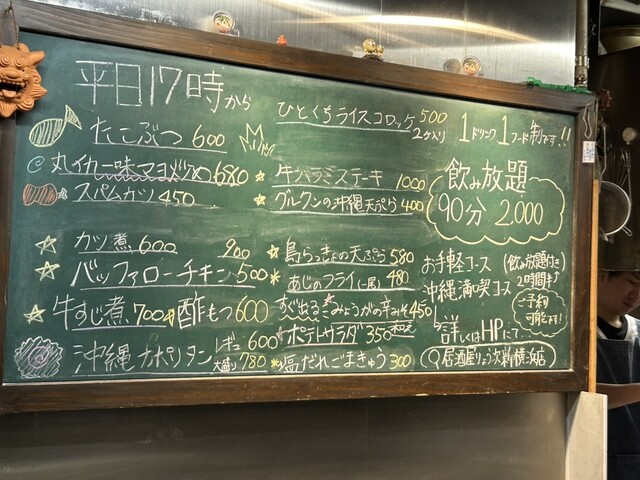 平日17時から
たこぶつ 600
@丸イカ一味マヨ炙め 680
スパムカツ 450
カツ煮 600 900
バッファローチキン 500
牛すじ煮 700 酢もつ 600
沖縄ナポリタン レギュ 600
大盛り 780
ひとくちライスコロッケ 500
2ケ入り
牛ハラミステーキ 1000
グルクンの沖縄天ぷら 400
島らっきょの天ぷら 580
あじのフライ(一尾) 480
みょうがの辛みそ 450
ポテトサラダ 350
塩だれごまきゅう 300
1ドリンク1フード制です!!
飲み放題
90分 2.000
お手軽コース (飲み放題付き)
沖縄満喫コース 2時間半
ご予約
可能です!
詳しくはHPにて...
Q居酒屋りょう次新横浜店